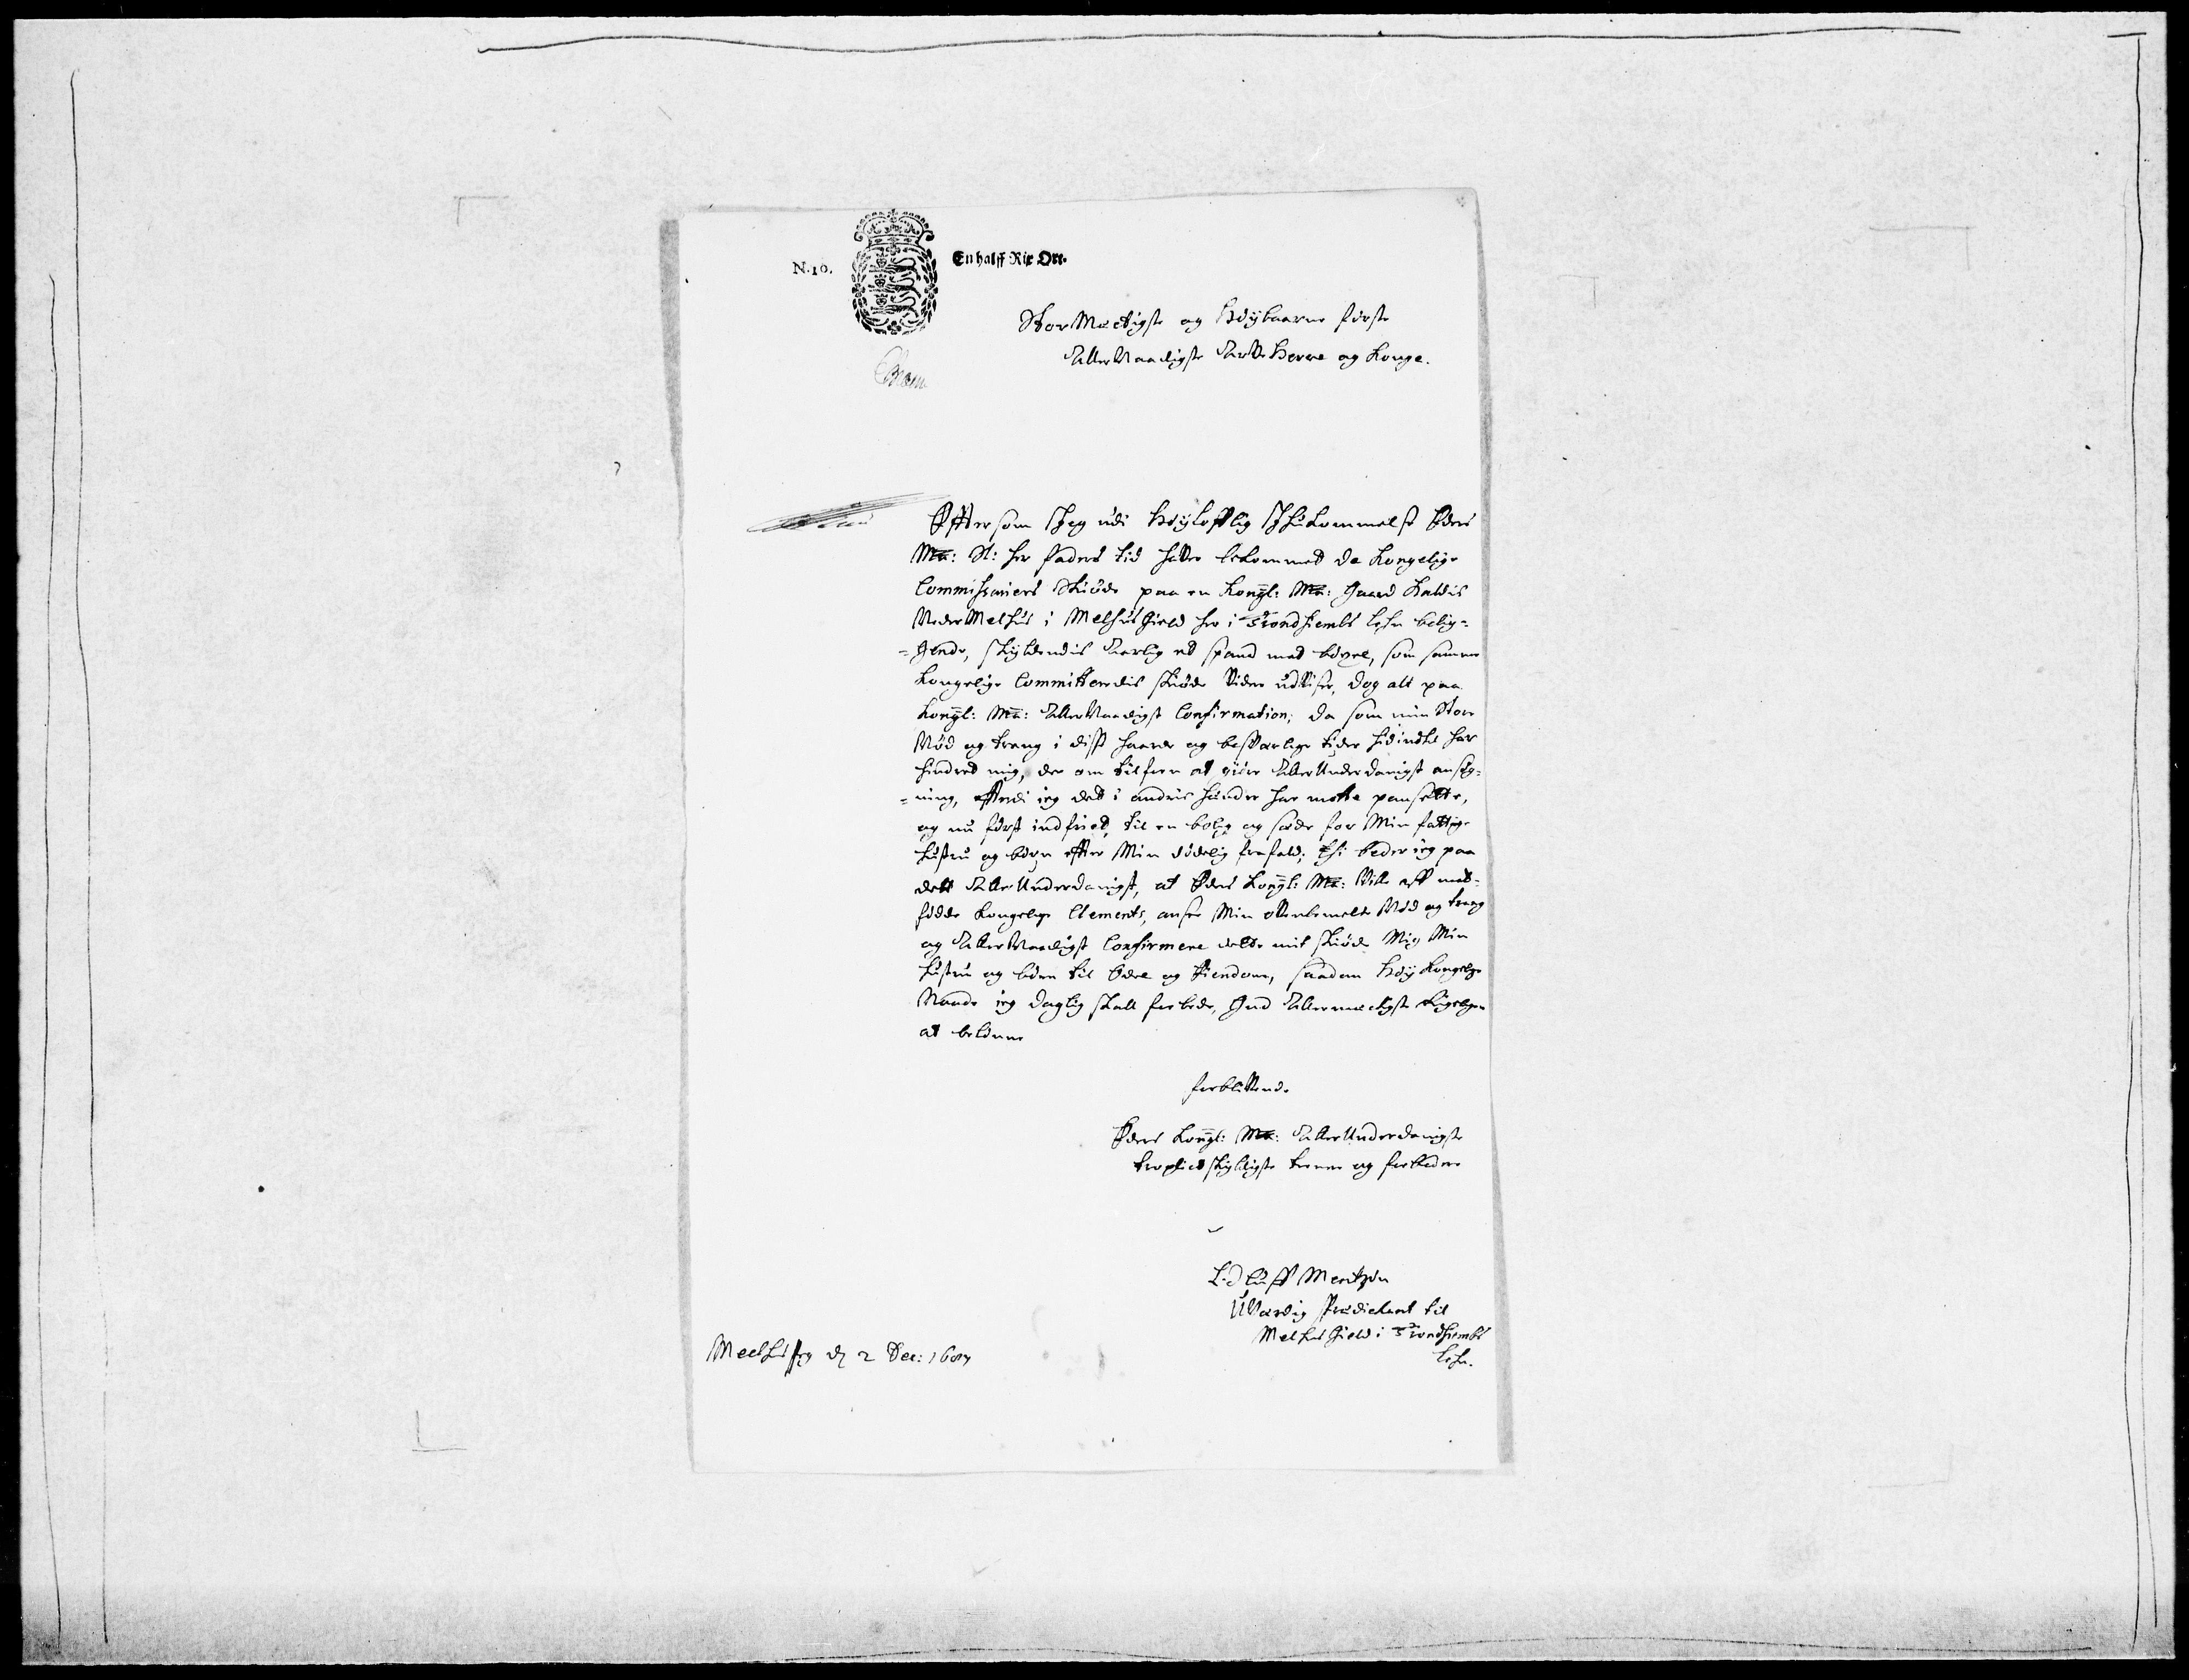 N. 10.
En halff Rix Ort.
StorMæctigste og Höÿbaarne förste
AllerNaadigste ArffueHerre og Konge.
Effter som Jeg udi Höÿlofflig Ihukommelse Eders
Ma: St: her faders tid hafver bekommet de Kongelige
Commissariers Skiöde paa en Kongl: Ma: Gaard Kaldis
NederMelhus i Melhusgield her i Trondhiembs Lehn belig=
=gende, skÿldendis Aarlig et spand med böxel, som samme
Kongelige Committeredis skiöde Videre udViser, dog alt paa
Kongl: Ma: AllerNaadigst Confirmation; da som min Store
Nöd og trang i disse haarde og besverlige tider hidindtil har
hindret mig, der om tilforn at giöre AllerUnderdanigst ansög=
=ning, efftersom jeg dett i andris hænder har motte pansette,
og nu först indfriet, til en bolig og sæde for Min fattige
hustru og börn effter Min dödelig frafald; Thi beder jeg paa
dett AllerUnderdanigst, at Eders Kongl: Ma: Ville aff med=
födde Kongelige Clements, ansee Min ofvenbemelte Nöd og trang
og AllerNaadigst Confirmere dette mit skiöde Mig Min
hustru og börn til Odel og Eiendom, saadan Höÿ Kongelige
Naade jeg daglig skall forbede, Gud Allermectigste Rigeligen
at belönne
forblifvende
Eders Kongl: Ma: AllerUnderdanigste
tropligtskyldigste tienere og forbedere
Mentzön
UVærdig Prædicant til
Melhus Gield i Trondhiembs
Lehn.
Meelhus d 2 Dec: